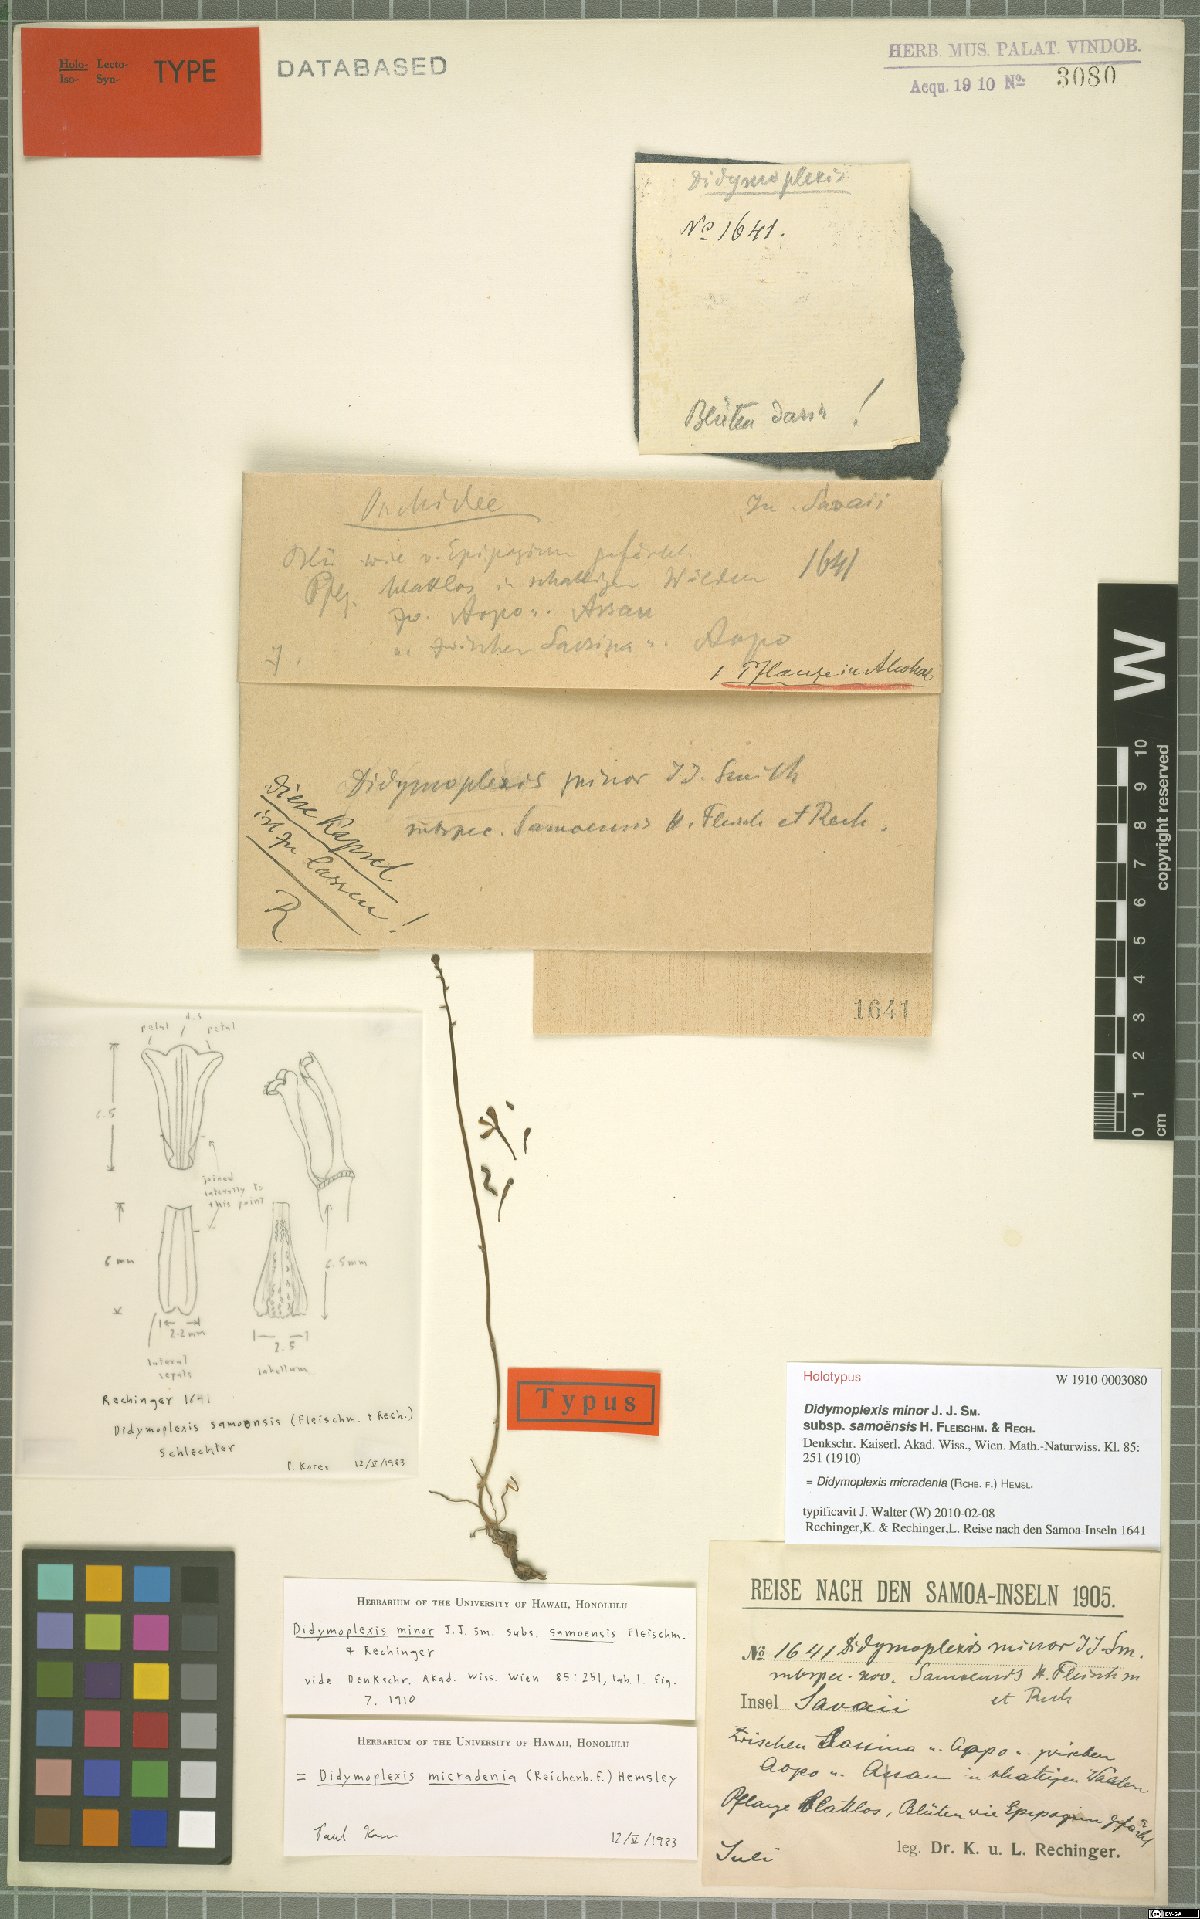 Holo- Lecto-
Iso- Syn-
TYPE
DATABASED
HERB. MUS. PALAT. VINDOB.
Acqu. 1910 No: 3080
Didymoplexis
No 1641.
Blüten darin !
Orchidee
In. Savaii
Blü wie v. Epipogium gefärbt.
Pflz. blattlos in schattigen Wäldern 1641
zw. Aopo u. Assau
u. zwischen Sassina u. Aopo
1 Pflanze in Alkohol
Didymoplexis minor J J. Smith
subspec. Samoensis H. Fleisch et Rech.
Diese Kapsel
ist zu lassen!
R
1641
d.s
petal petal
6.5
joined
laterally to
this point
6 mm
6.5mm
2.2mm
2.5
lateral
sepals
labellum
Rechinger 1641
Didymoplexis samoensis (Fleischm. & Rech.)
Schlechter
P. Kores 12/V/1983
Typus
Holotypus W 1910 0003080
Didymoplexis minor J. J. SM.
subsp. samoënsis H. FLEISCHM. & RECH.
Denkschr. Kaiserl. Akad. Wiss., Wien. Math.-Naturwiss. Kl. 85:
251 (1910)
= Didymoplexis micradenia (RCHB. F.) HEMSL.
typificavit J. Walter (W) 2010-02-08
Rechinger,K. & Rechinger,L. Reise nach den Samoa-Inseln 1641
HERBARIUM OF THE UNIVERSITY OF HAWAII, HONOLULU
Didymoplexis minor J.J. Sm. subs. samoensis Fleischm.
& Rechinger
vide Denkschr. Akad. Wiss. Wien 85:251, tab.1. fig.
7. 1910
HERBARIUM OF THE UNIVERSITY OF HAWAII, HONOLULU
= Didymoplexis micradenia (Reichenb. f.) Hemsley
Paul Kores 12/V/1983
REISE NACH DEN SAMOA-INSELN 1905.
No 1641 Didymoplexis minor J J. Sm.
subspec. nov. Samoensis H. Fleischm
et Rech
Insel Savaii
zwischen Sassina u. Aopo u. zwischen
Aopo u. Assau in schattigen Wäldern
Pflanze blattlos, Blüten wie Epipogium gefärbt
Juli
leg. Dr. K. u. L. Rechinger.
W
0 1 2 3 4 5 6 7 8 9 10
cm
copyright reserved